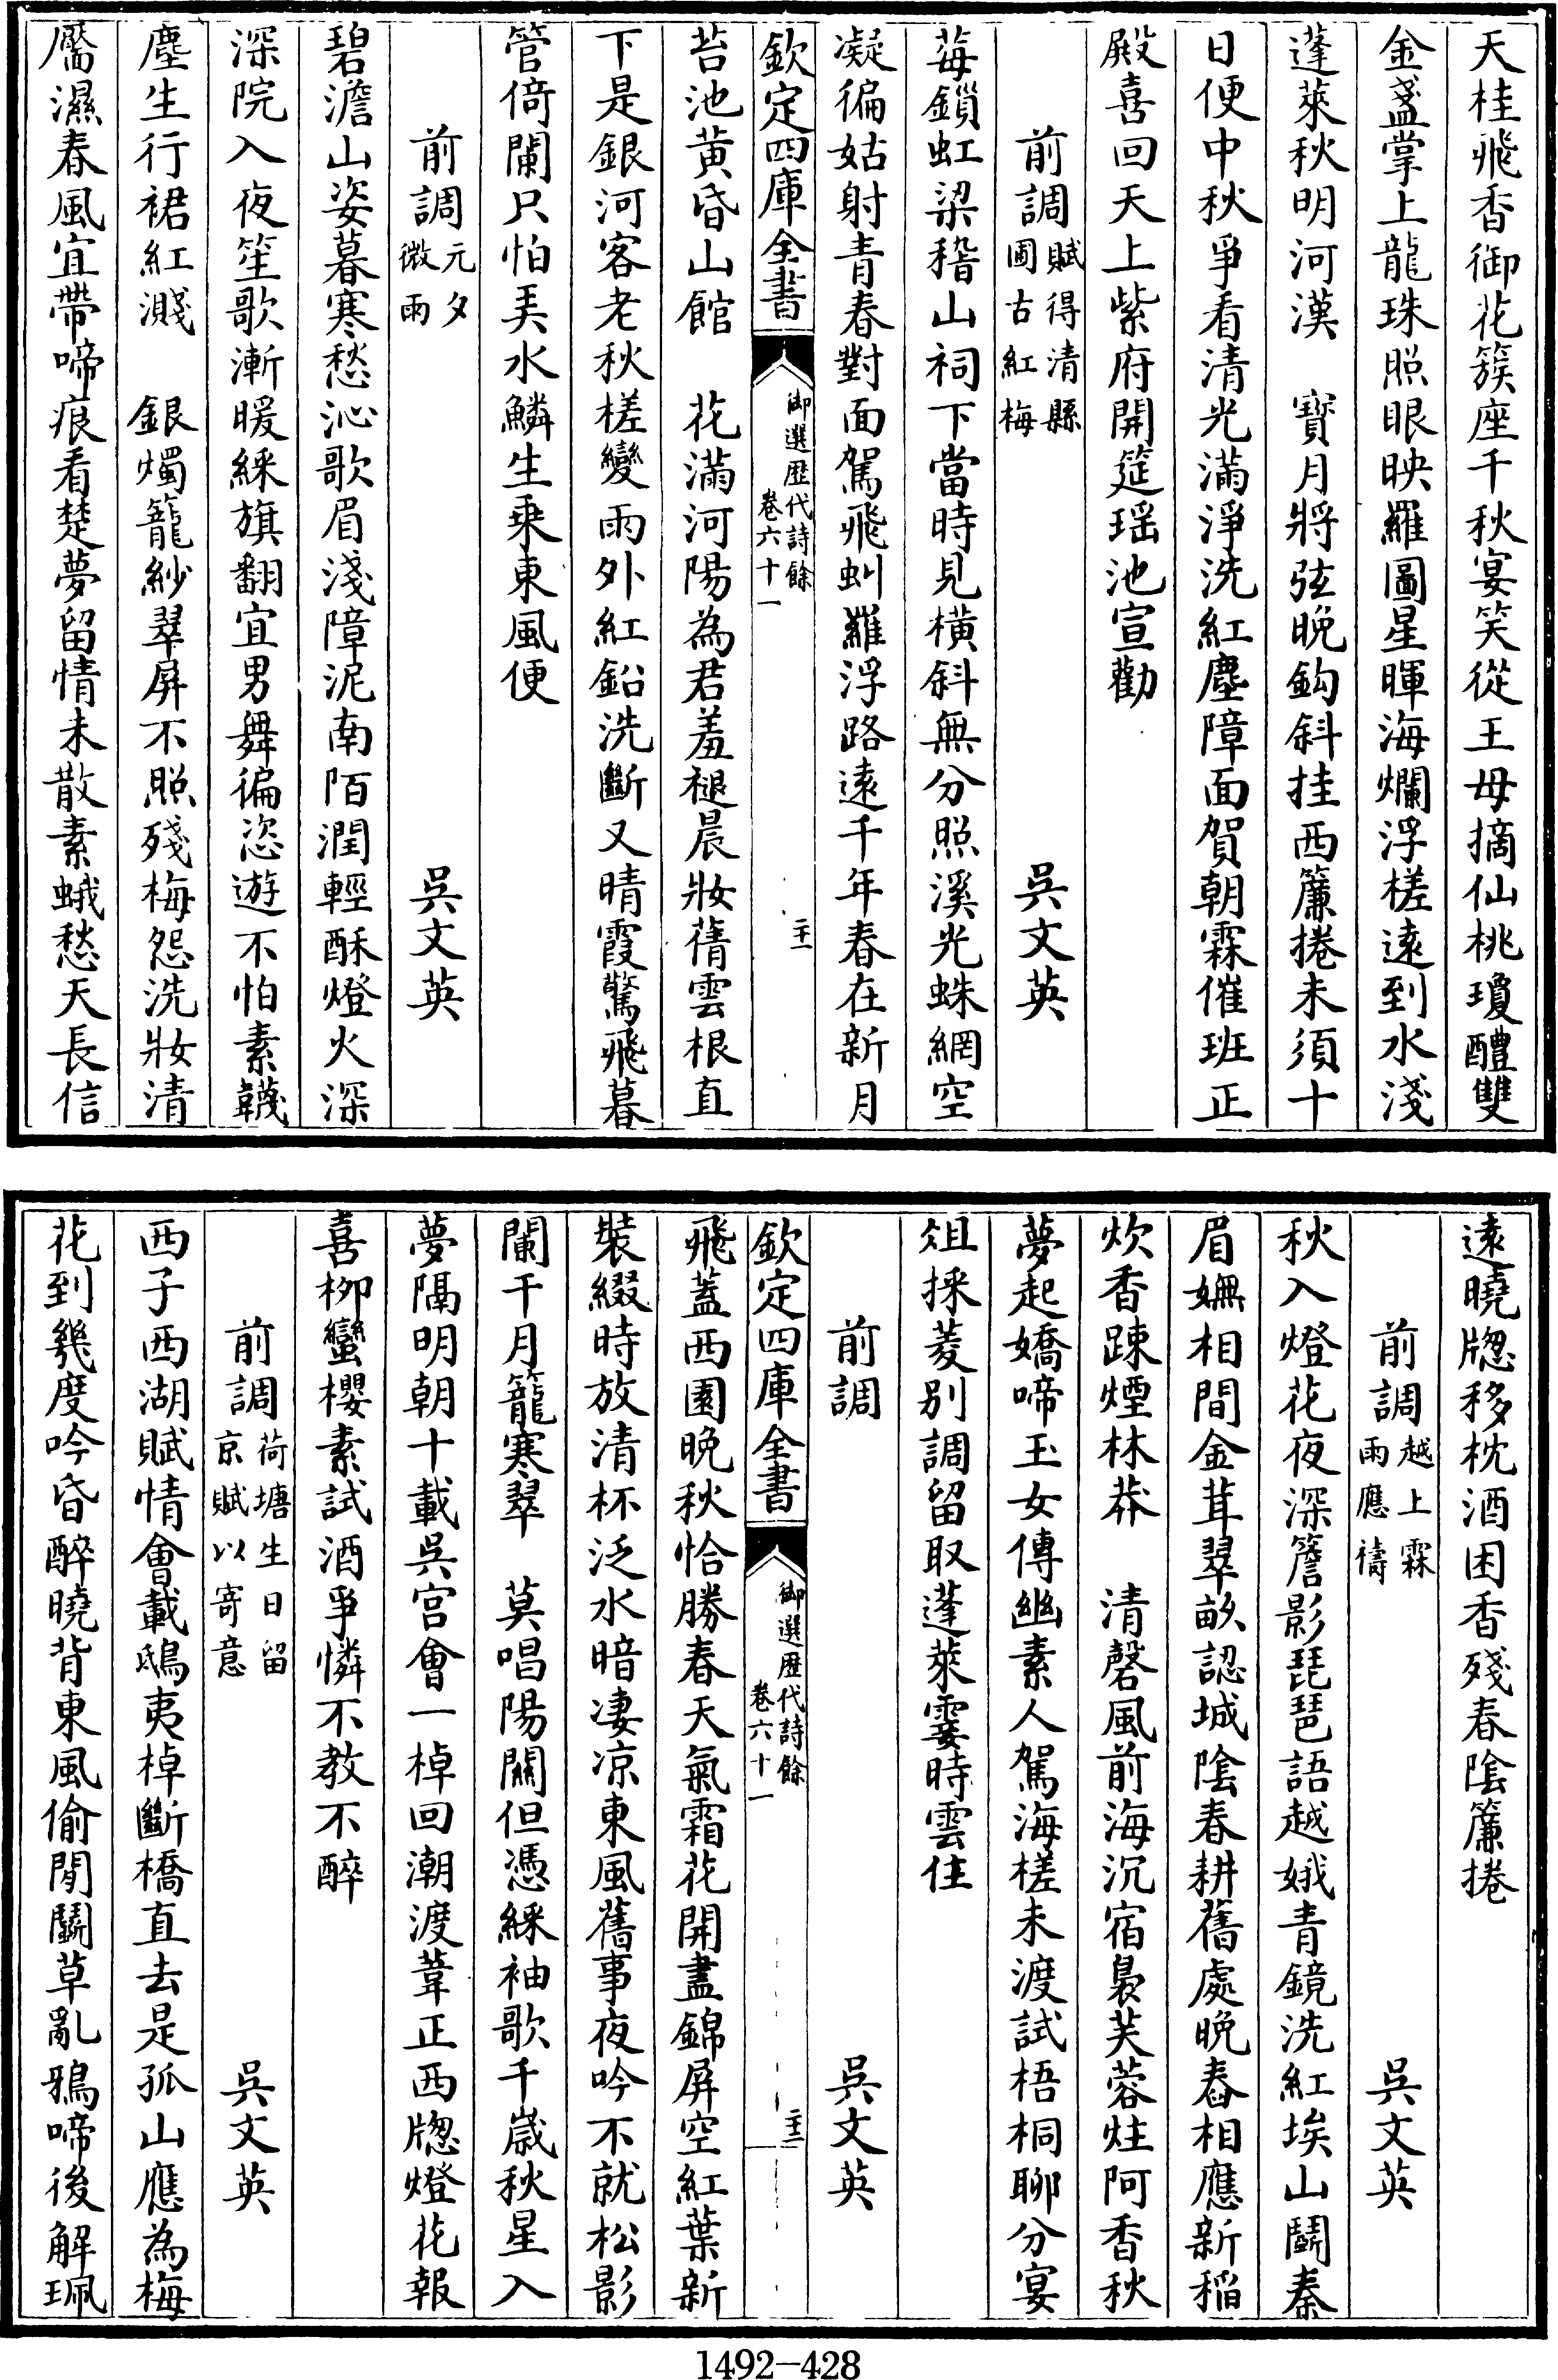 天桂飛香御花簇座千秋宴笑從王母摘仙桃瓊醴雙
金盞掌上龍珠照眼映羅圖星暉海爛浮槎遠到水淺
蓬萊秋明河漢　寳月將弦晚鈎斜挂西簾捲未須十
日便中秋爭看清光滿淨洗紅塵障面賀朝霖催班正
殿喜回天上紫府開筵瑶池宣勸
前調賦得清縣圃古紅梅　吳文英
莓鎖虹梁稽山祠下當時見橫斜無分照溪光蛛網空
凝徧姑射青春對面駕飛虬羅浮路遠千年春在新月
欽定四庫全書　御選歴代詩餘卷六十一　二十一
苔池黄昏山館　花滿河陽為君羞褪晨妝蒨雲根直
下是銀河客老秋槎變雨外紅鉛洗斷又晴霞驚飛暮
管倚闌只怕弄水鱗生乘東風便
前調元夕微雨　吳文英
碧澹山姿暮寒愁沁歌眉淺障泥南陌潤輕酥燈火深
深院入夜笙歌漸暖綵旗翻宜男舞徧恣遊不怕素韈
塵生行裙紅濺　銀燭籠紗翠屏不照殘梅怨洗妝清
靨濕春風宜帶啼痕看楚夢留情未散素蛾愁天長信
遠曉牕移枕酒困香殘春陰簾捲
前調越上霖雨應禱　吳文英
秋入燈花夜深簷影琵琶語越娥青鏡洗紅埃山鬭秦
眉嫵相間金茸翠畝認城陰春耕舊處晚舂相應新稲
炊香踈煙林莽　清磬風前海沉宿裊芙蓉炷阿香秋
夢起嬌啼玉女傳幽素人駕海槎未渡試梧桐聊分宴
俎採菱别調留取蓬萊霎時雲住
前調　吳文英
欽定四庫全書　御選歴代詩餘卷六十一　二十二
飛蓋西園晚秋恰勝春天氣霜花開盡錦屏空紅葉新
裝綴時放清杯泛水暗凄凉東風舊事夜吟不就松影
闌干月籠寒翠　莫唱陽關但憑綵袖歌千嵗秋星入
夢隔明朝十載吳宫會一棹回潮渡葦正西牕燈花報
喜栁蠻櫻素試酒爭憐不教不醉
前調荷塘生日留京賦以寄意　吳文英
西子西湖賦情會載鴟夷棹斷橋直去是孤山應為梅
花到幾度吟昏醉曉背東風偷閒鬭草亂鴉啼後解珮
1492—428